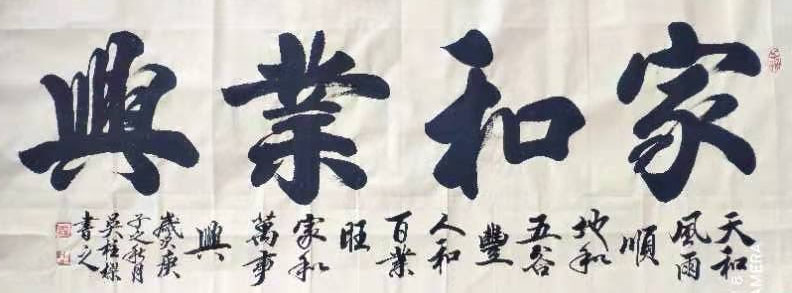 家和業興
天和
風雨
順
地和
五谷
豐
人和
百業
旺
家和
萬事
興
歲次庚
子之秋月
吳桂樑
書之